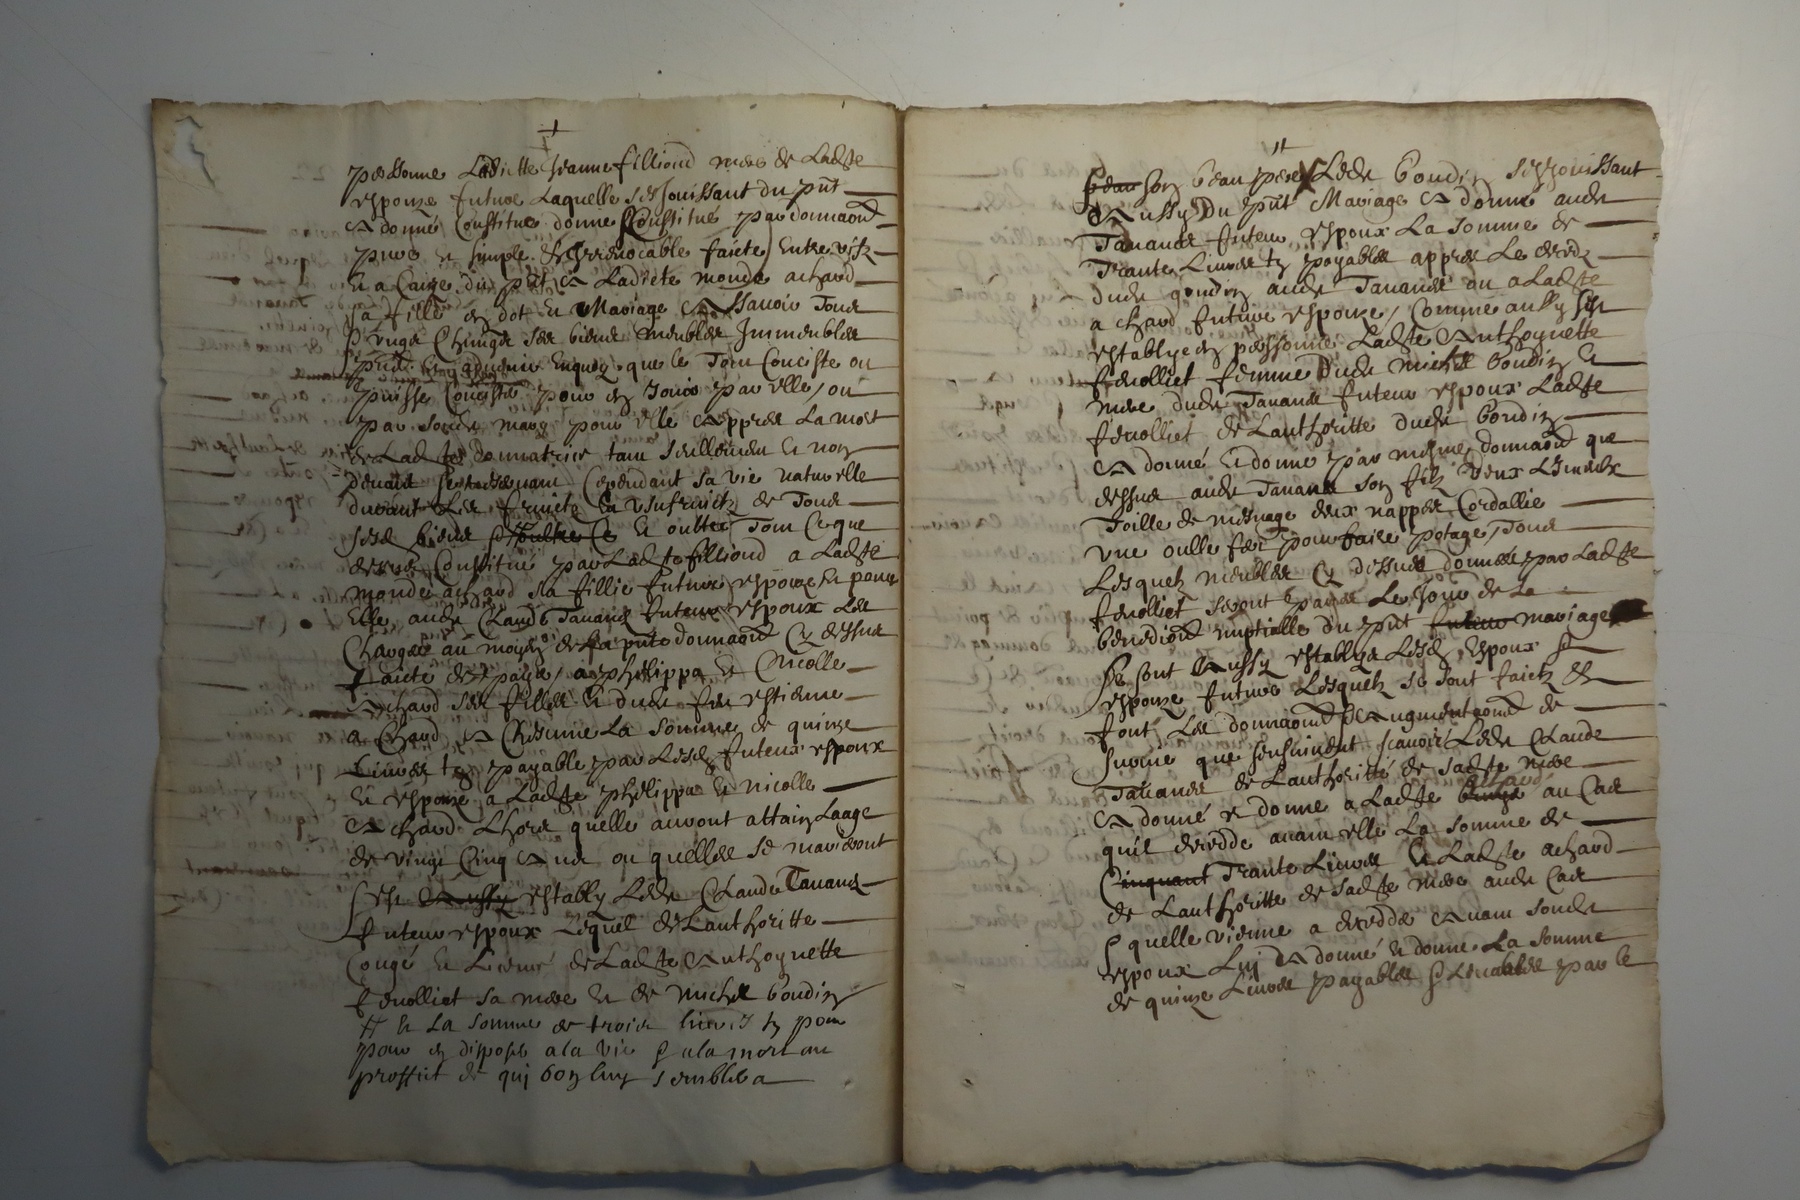 personne Ladicte Jeanne filliond mere de Ladte
espouze future Laquelle sesjouissant du pnt
A donné Constitue donne Constitué par donnaon
pure et simple & Irrevocable faicte Entre vifz
Et a Cause du pnt A Ladicte monde achard
sa fille en dot et Mariage A Scavoir Tous
Chungz ses biens meubles Immeubles
pnts et advenir Enquoy que le Tout Conciste ou
puisse Conciste pour en Jouir par elle / ou
par sondit mary pour elle Appres La mort
de Ladte donnatrice tant seullement et non
Cependant sa vie naturelle
durant Les fruictz Et usufruictz de Tous
sesd biens et oultre Tout Ce que
dessus Constitué par Ladte filliond a Ladte
monde achard sa fillie future espouze Et pour
Elle audit Claude Tavand futeur espoux Les
Charges au moyen de la pnte donnaon Cy dessus
faicte de payer / a philippa et Nicolle
Achard ses filles Et dudit feu estienne
achard A Chescune La Somme de quinze
Livres tz payable par Lesd futeur espoux
Et espouze a Ladte philippa Et nicolle
Achard Lhors quelle auront attain Laage
de vingt Cinq Ans ou quelles se marieront
sest Aussy estably Ledit Claude Tavand
futeur espoux Lequel de Lauthoritte
Congé et Licence de Ladte Anthoynette
fenolliet sa mere Et de michel boudin
# et La somme de trois livres tz pour
pour en disposer a la vie & a la mort au
proffict de qui bon luy semblera
beau son beau pere Ledit boudin sesjouissant
Aussy Du pnt Mariage A donné audit
Tavand futeur espoux La somme de
Trante Livres tz payables appres Le deces
dudit boudin audit Tavand ou a Ladte
achard future espouze / Comme aussy sest
establye en personne Ladte Anthoynette
fenolliet femme Dudit michel boudin Et
mere dudit Tavand futeur espoux Ladte
fenolliet de Lauthoritte dudit boudin
A donné Et donne par mesme donnaon que
dessus audit Tavand son filz deux Linceulx
Toille de mesnage deux nappes Cordallie
une oulle fer pour faire potage / Tous
Lesquelz meubles Cy dessus donnés par Ladte
fenolliet seront payes Le Jour de La
benedion nuptialle du pnt futeur mariage
Se sont Aussy establys Lesd Espoux et
espouze future Lesquelz se sont faictz et
font Les donnaons & Augmentaons de
survie que sensuivent / scavoir Ledit Claude
Tavand de Lauthoritté de sadte mere
A donné et donne a Ladte achard au Cas
quil decedde avant elle La somme de
Cinquant Trante Livres Et Ladte achard
de Lauthoritte de sadte mere audit Cas
quelle vienne a decedder Avant sondit
espoux Luy A donné Et donne La somme
de quinze Livres payables & par le